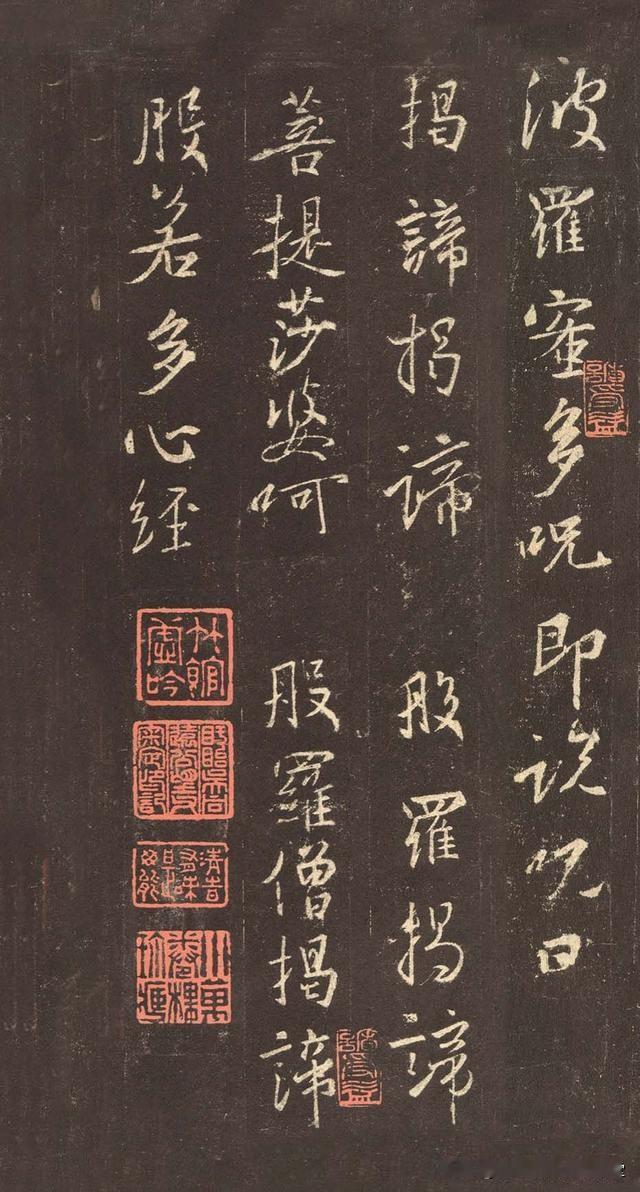 波羅蜜多呪即說呪曰
揭諦揭諦 般羅揭諦
菩提莎婆呵 般羅僧揭諦
般若多心經
竹館虛吟